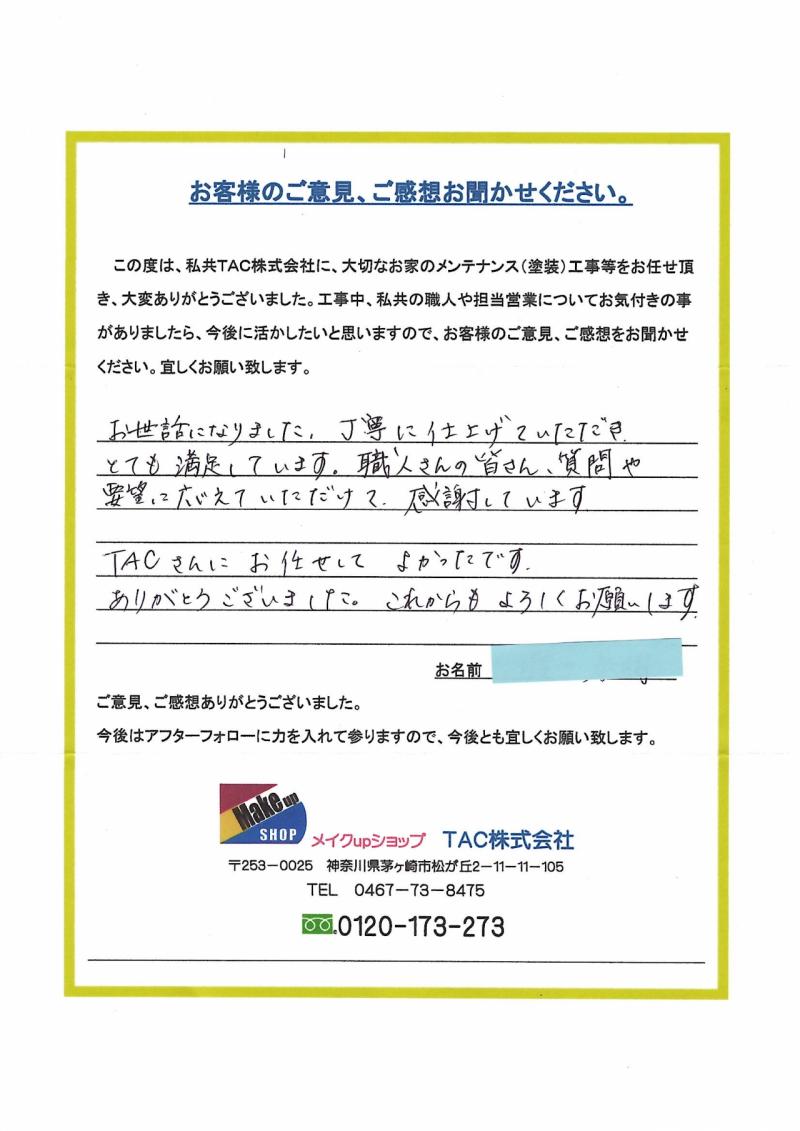 お客様のご意見、ご感想お聞かせください。
この度は、私共TAC株式会社に、大切なお家のメンテナンス（塗装）工事等をお任せ頂
き、大変ありがとうございました。工事中、私共の職人や担当営業についてお気付きの事
がありましたら、今後に活かしたいと思いますので、お客様のご意見、ご感想をお聞かせ
ください。宜しくお願い致します。
お世話になりました。丁寧に仕上げていただき
とても満足しています。職人さんの皆さん、質問や
要望に応えていただけて、感謝しています
TACさんにお任せしてよかったです。
ありがとうございました。これからもよろしくお願いします
お名前
ご意見、ご感想ありがとうございました。
今後はアフターフォローに力を入れて参りますので、今後とも宜しくお願い致します。
Make up
SHOP
メイクupショップ TAC株式会社
〒253－0025 神奈川県茅ヶ崎市松が丘2－11－11－105
TEL 0467－73－8475
0120-173-273